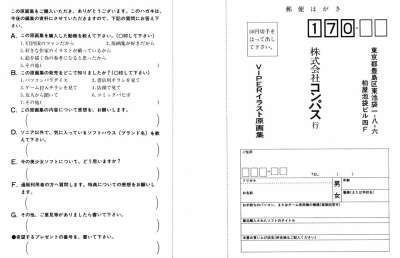 この原画集をご購入いただき、ありがとうございます。このハガキは、
今後の編集の資料にさせていただきますので、下記の質問にお答え下
さい。
A. この原画集を購入した動機を教えて下さい。(○印して下さい)
1. VIPERのファンだから
2. 原画集が好きだから
3. 好きな作家のイラストが載っているから
4. 絵を描く為の参考になると思ったから
5. その他(　　　)
B. この原画集の発売をどこで知りましたか?(○印して下さい)
1. パソコンパラダイス
2. 書店用チラシを見て
3. ゲーム封入チラシを見て
4. 店頭で見て
5. 友人から聞いて
6. コミックバイブ
7. その他(　　　)
C. この原画集の内容について感想を、お願いします。
D. ソニア以外で、気に入っているソフトハウス(ブランド名)を教
えて下さい。
E. 今の美少女ソフトについて、どう思いますか?
F. 通信利用者の方へ質問します。特典についての感想をお願いし
ます。
G. その他、ご意見等がありましたら書いて下さい。
●希望するプレゼントの番号を、書いて下さい。
郵便はがき
170-
50円切手を
はって出し
て下さい。
東京都豊島区東池袋一-八-六
相屋池袋ビル四F
株式会社コンパス 行
VIPERイラスト原画集
ご住所
TEL (　)
フリガナ
お名前
男
女
年齢
職業(または学校名)
お手持ちのパソコン、またはゲーム使用機の機種(複数回答可)
最近購入されたソフトのタイトル